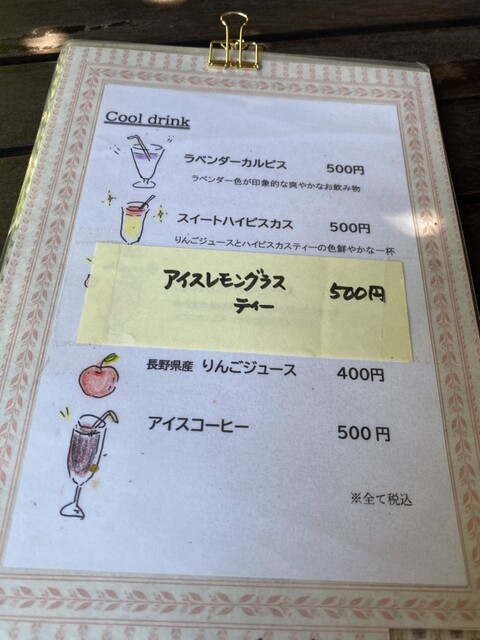 Cool drink
ラベンダーカルピス 500円
ラベンダー色が印象的な爽やかなお飲み物
スイートハイビスカス 500円
りんごジュースとハイビスカスティーの色鮮やかな一杯
アイスレモングラス 500円
ティー
長野県産 りんごジュース 400円
アイスコーヒー 500円
※全て税込